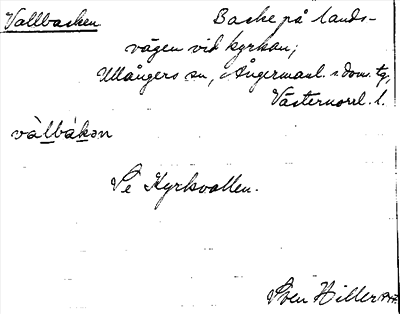 Vallbacken Backe på lands-
vägen vid kyrkan;
Ullångers sn, Ångermanl. s dom. tg,
Västernorrl. l.
vàlbákən
Se Kyrkvallen.
Sven Hiller